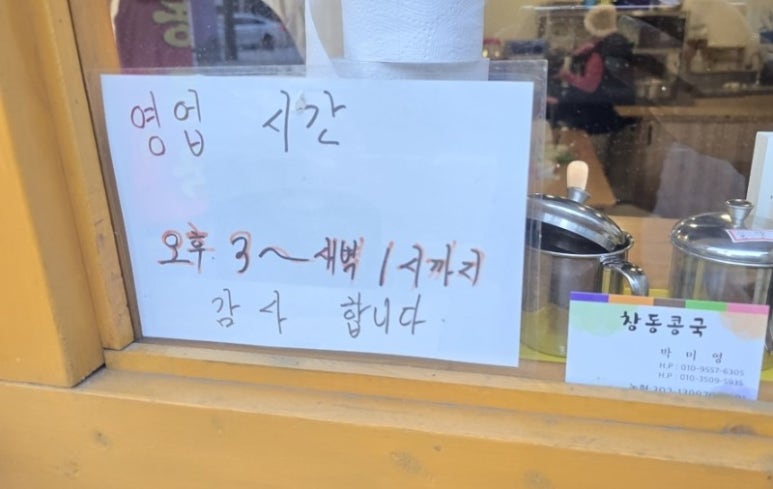 영업 시간
오후 3~새벽 1시까지
감사 합니다.
창동콩국
박미영
H.P : 010-9557-6305
H.P : 010-3509-5935
농협